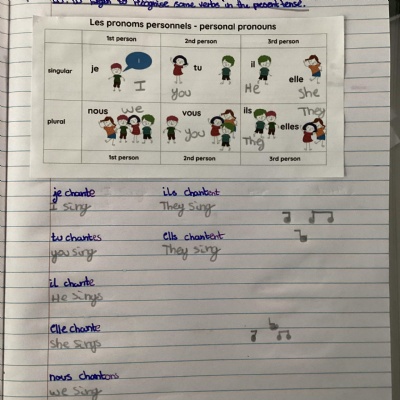 to recognise some verbs in the present tense.
Les pronoms personnels - personal pronouns
1st person 2nd person 3rd person
singular je tu il elle
I you He She
plural nous vous ils elles
we you They They
1st person 2nd person 3rd person
je chante ils chantent
I sing They sing
tu chantes ells chantent
you sing They sing
il chante
He sings
elle chante
She sings
nous chantons
we sing